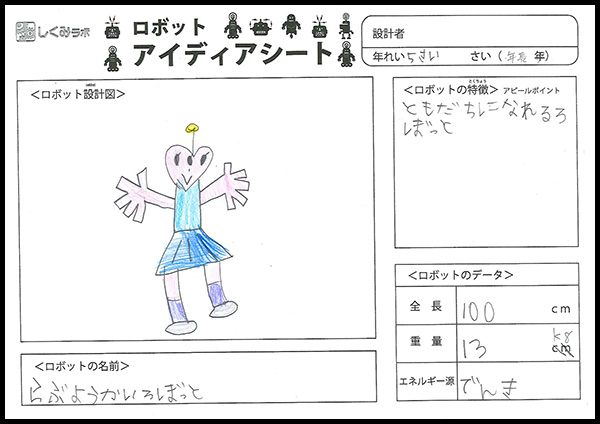 しくみラボ
ロボット
アイディアシート
設計者
年れい 5さい さい ( 年長 年)
<ロボット設計図>
<ロボットの特徴> アピールポイント
とくちょう
ともだちになれるろ
ぼっと
<ロボットのデータ>
全長 100 cm
重量 13 kg
エネルギー源 でんき
<ロボットの名前>
らぶようかいろぼっと